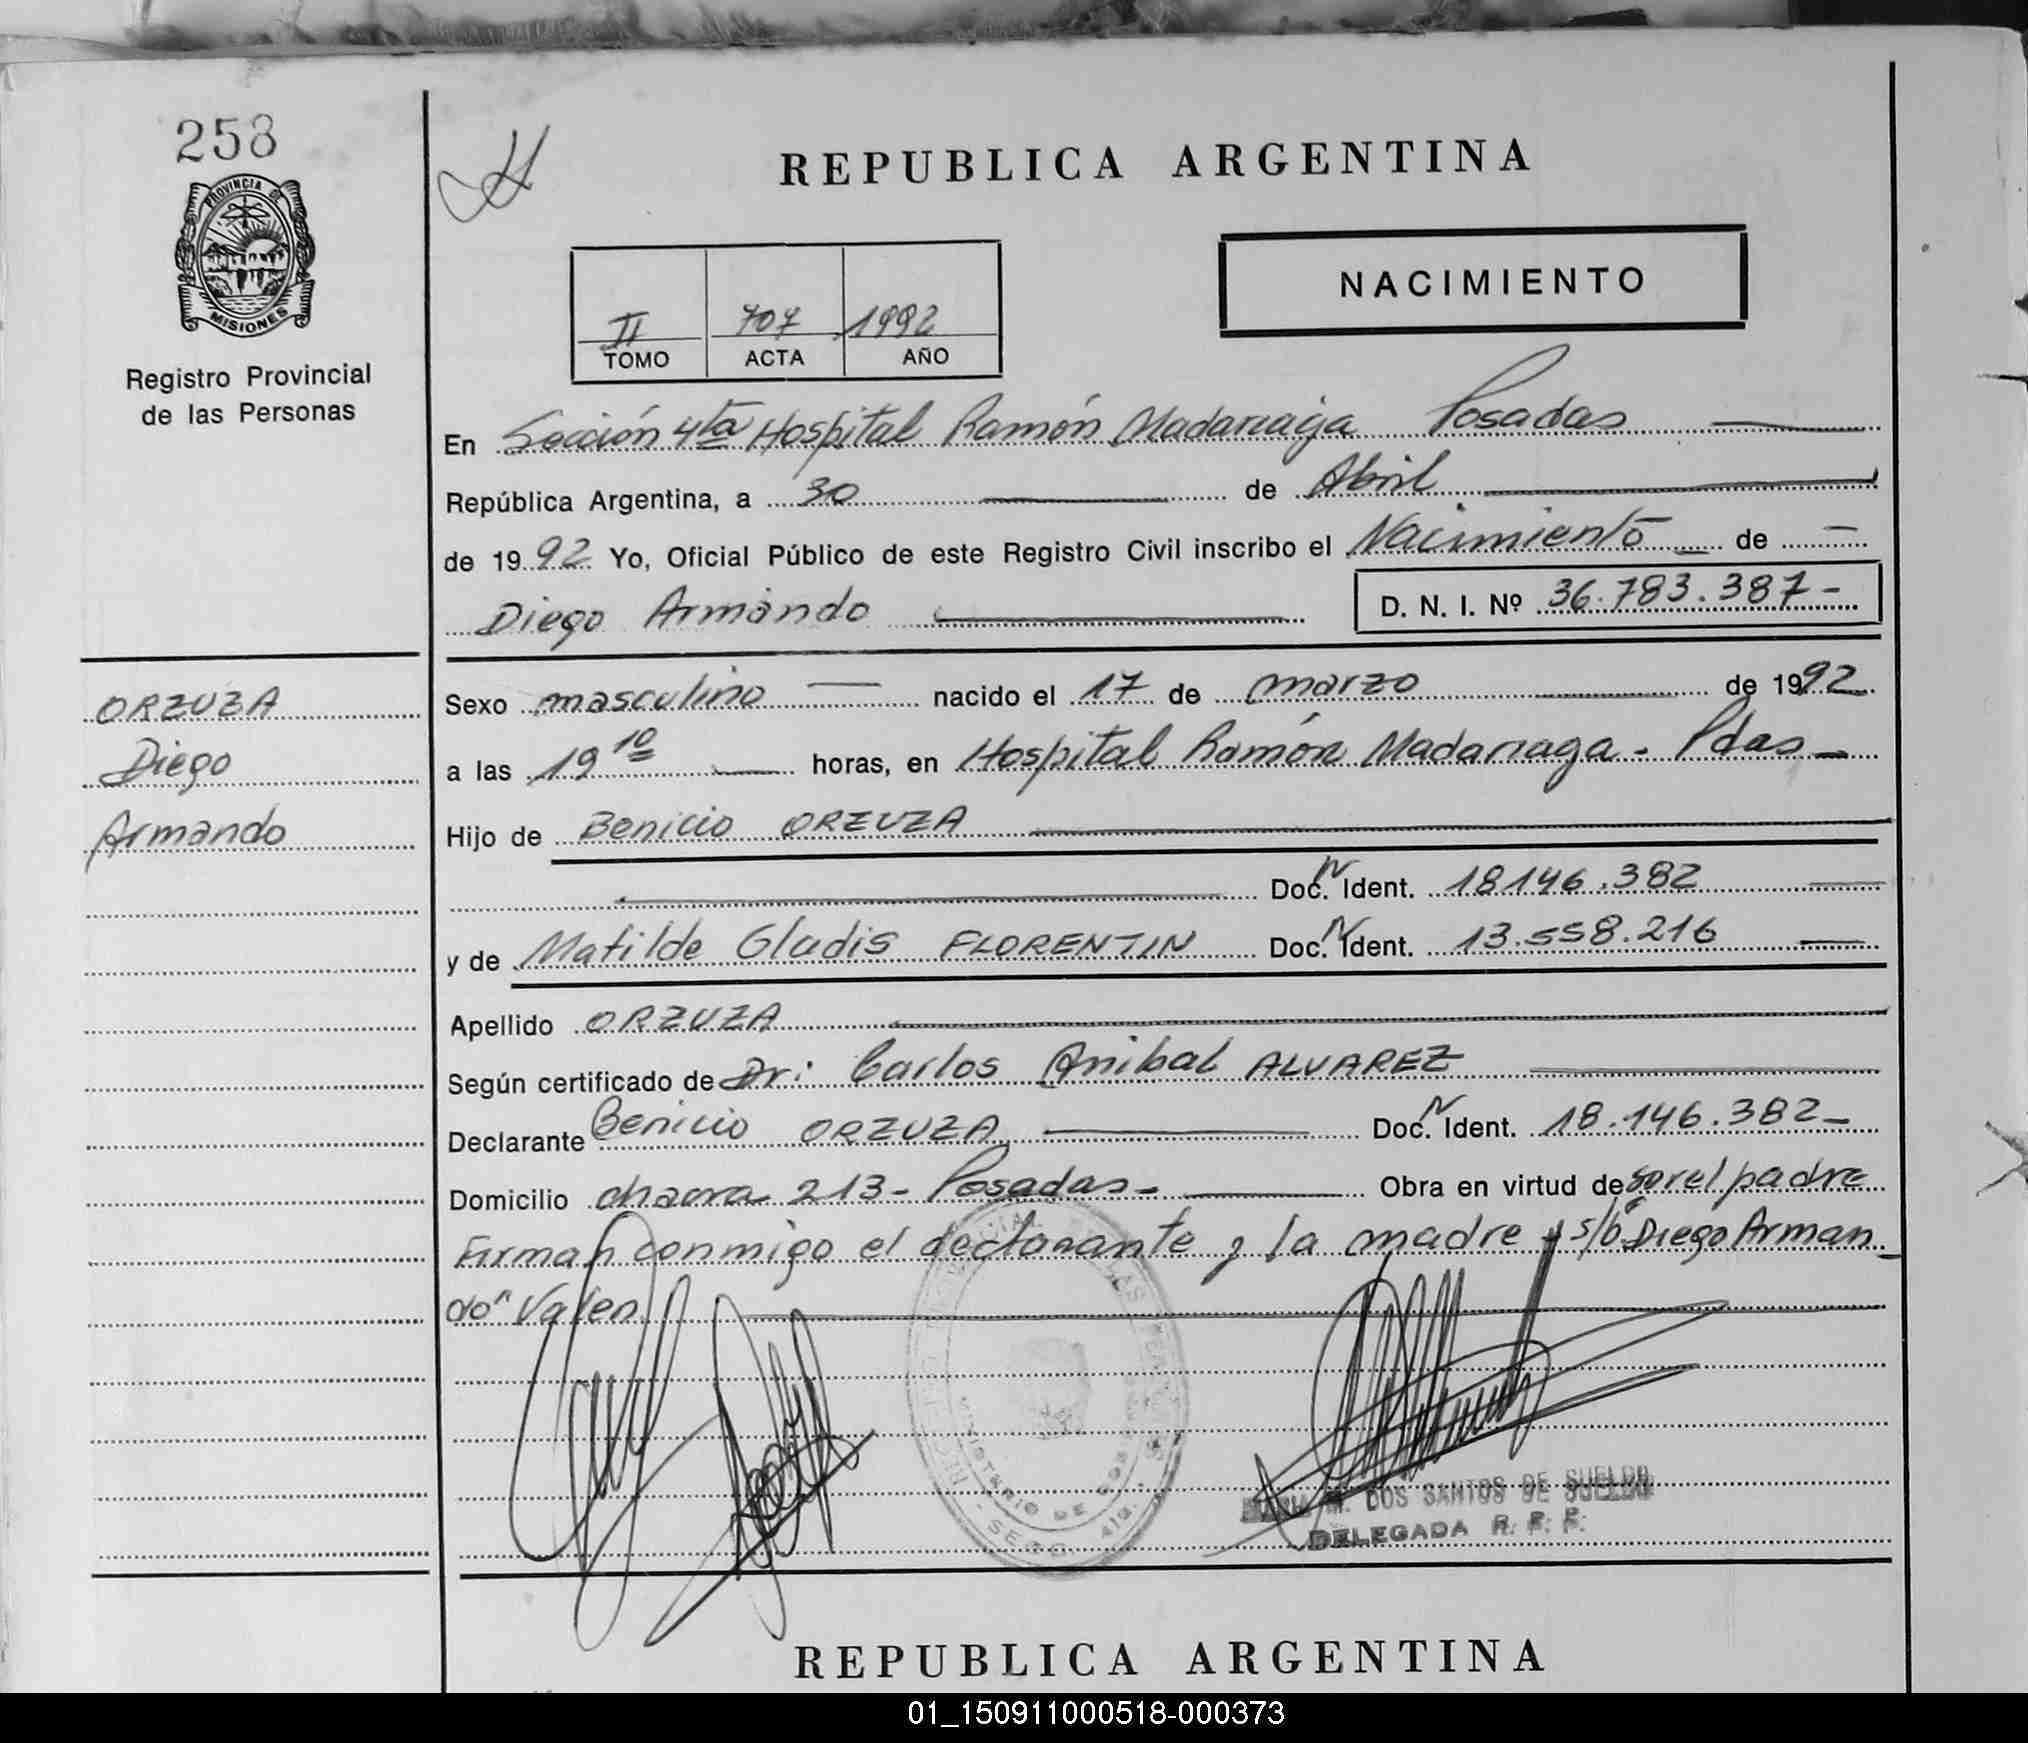 258
PROVINCIA DE
MISIONES
Registro Provincial
de las Personas
REPUBLICA ARGENTINA
NACIMIENTO
II 707 1992
TOMO ACTA AÑO
En Sección 4ta Hospital Ramón Madariaga Posadas
República Argentina, a 30 de Abril
de 1992 Yo, Oficial Público de este Registro Civil inscribo el Nacimiento de
Diego Armando D. N. I. Nº 36.783.387-
ORZUZA
Diego
Armando
Sexo masculino nacido el 17 de marzo de 1992
a las 19 10 horas, en Hospital Ramón Madariaga - Pdas
Hijo de Benicio ORZUZA
Doc. N Ident. 18146.382
y de Matilde Gladis FLORENTIN Doc. N Ident. 13.558.216
Apellido ORZUZA
Según certificado de Dr: Carlos Anibal ALVAREZ
Declarante Benicio ORZUZA Doc. N Ident. 18.146.382-
Domicilio chacra 213- Posadas- Obra en virtud de ser el padre
Firman conmigo el declarante y la madre s/b Diego Arman
do" Valen.
MINISTERIO DE
DOS SANTOS DE SUELDO
DELEGADA R. P. P.
REPUBLICA ARGENTINA
01_150911000518-000373